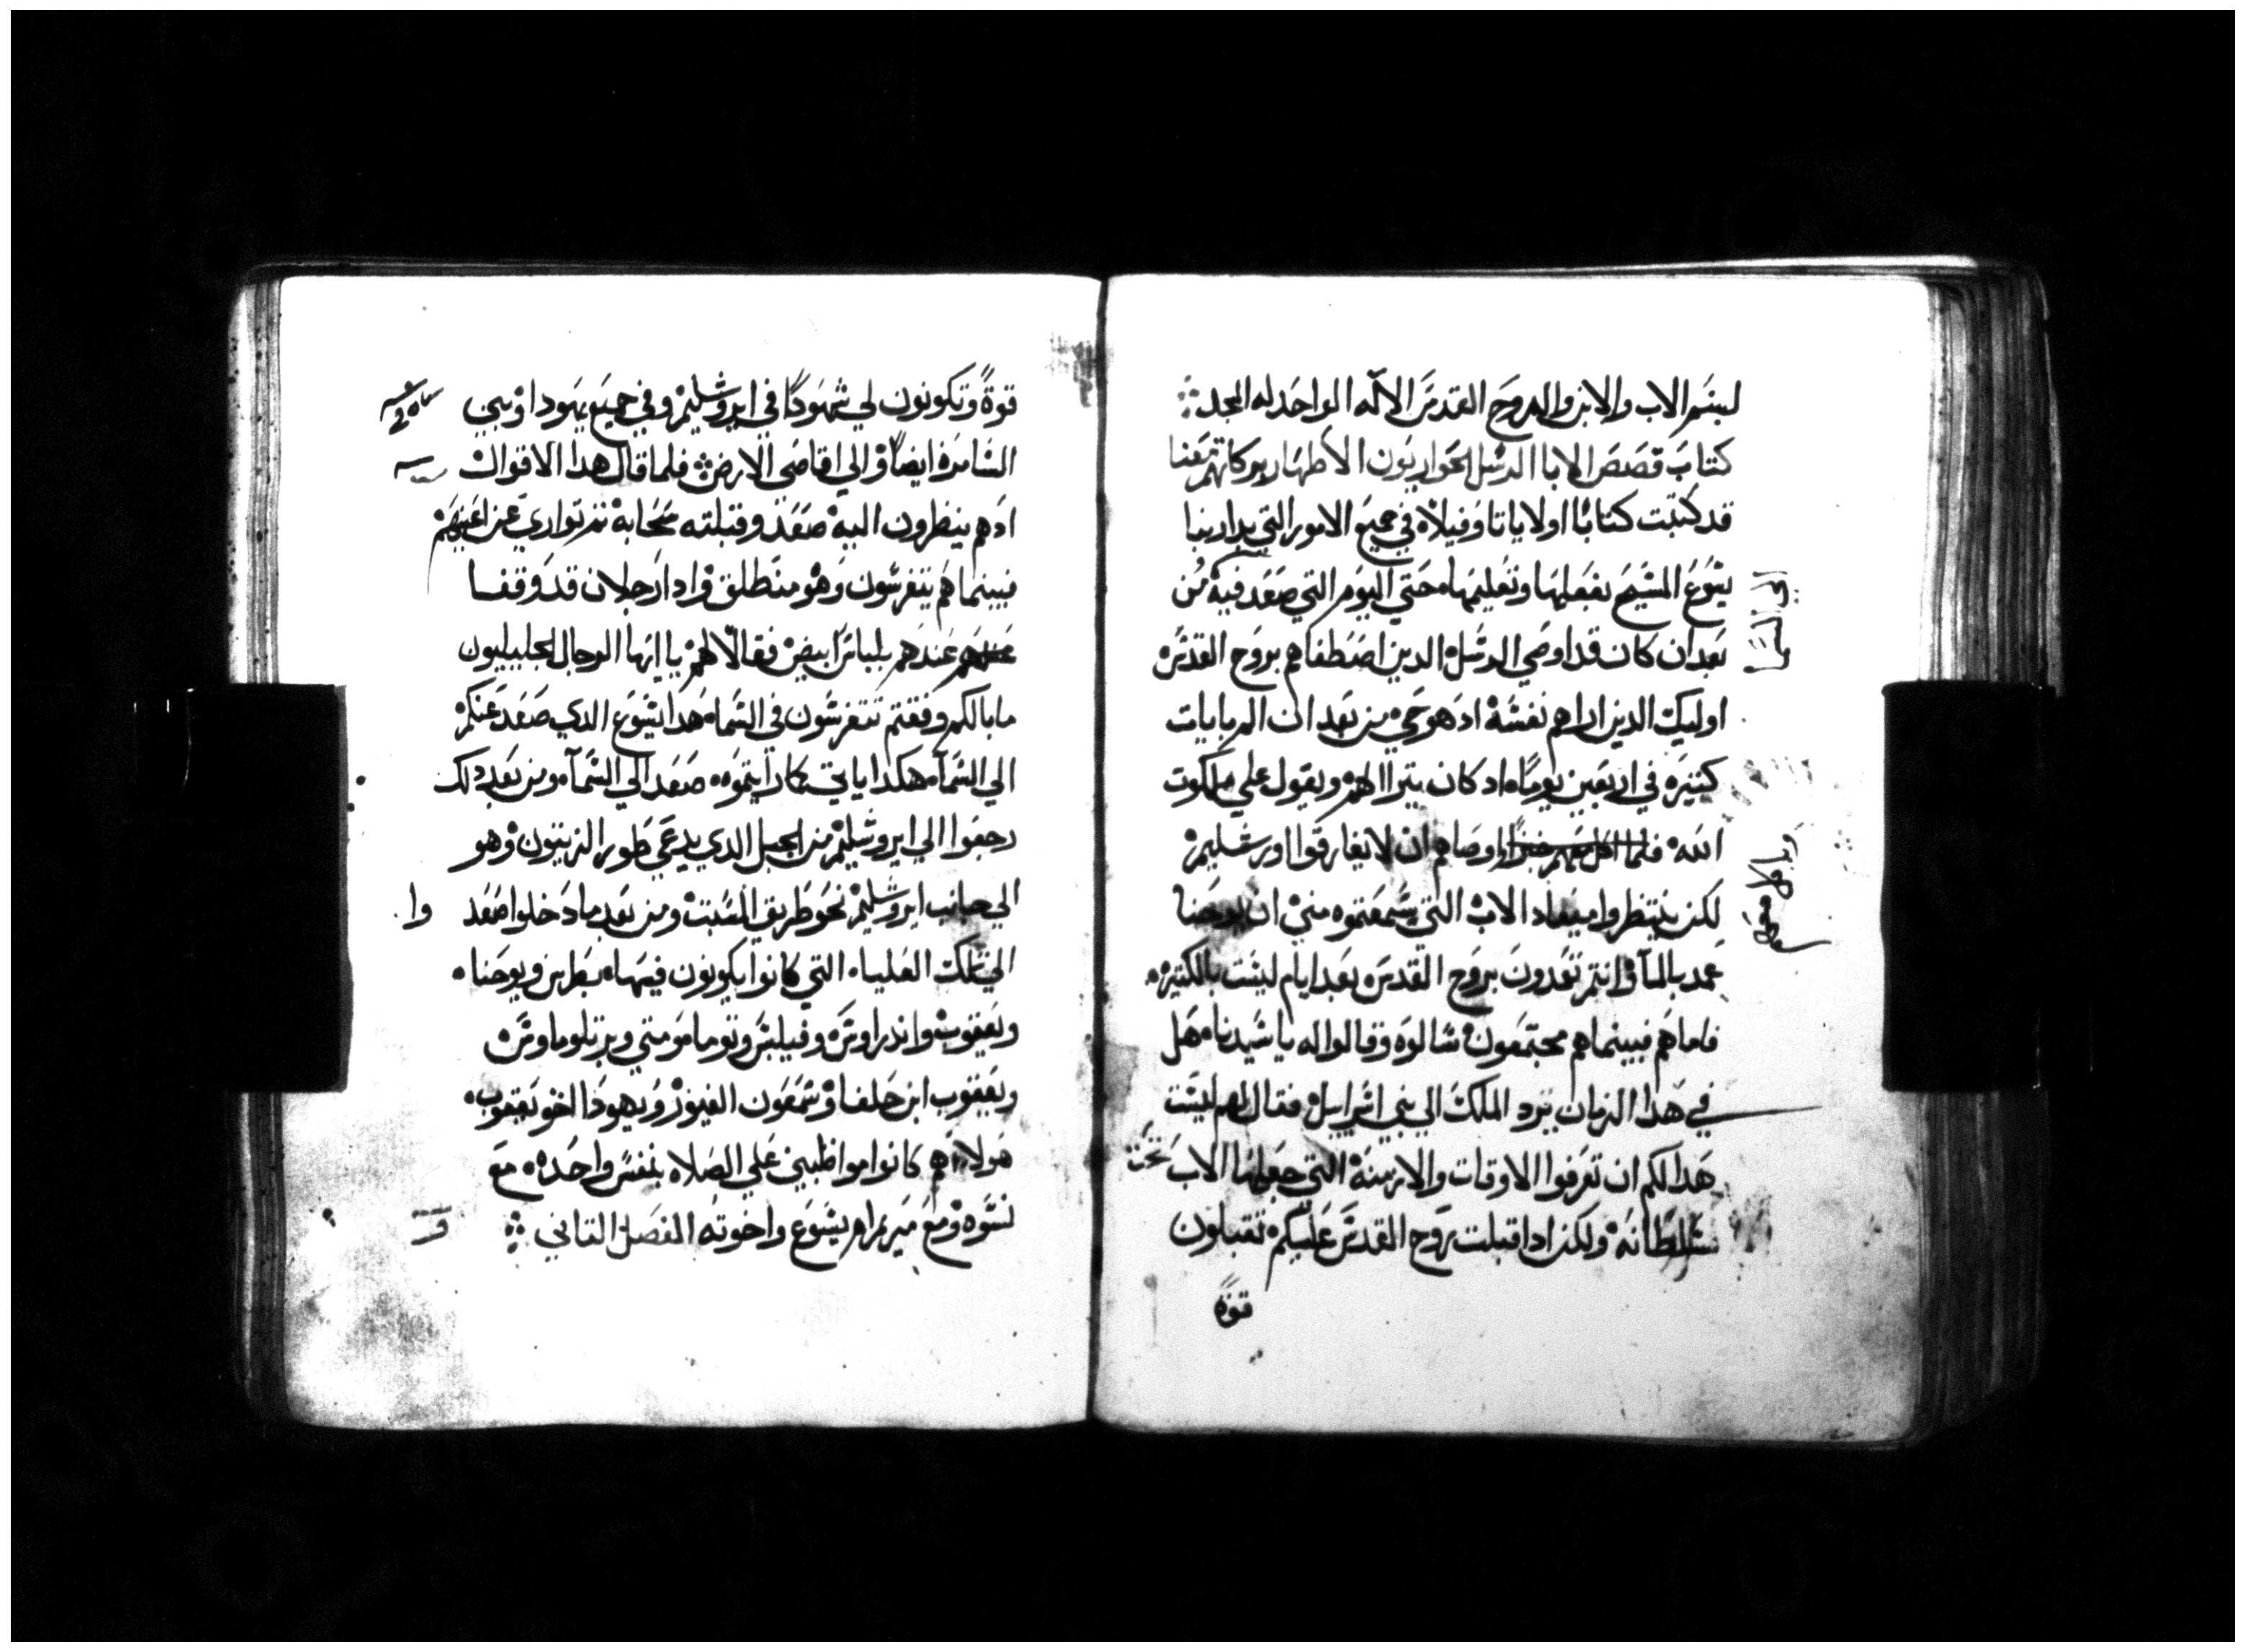 لبسم الاب والابن والروح القدس الاله الواحد له المجد
كتاب قصص الابا الرسل الحواريون الاطهار بركاتهم معنا
قد كتبت كتابًا اولا يا تاوفيلا في جميع الامور التي بدا ربنا
يشوع المسيح بفعلها وتعليمها حتي اليوم التي صعد فيه من
الي السما
بعد ان كان قد اوصي الرسل الدين اصطفاهم بروح القدس
اوليك الدين اراهم نفسه اد هو حي من بعد ان الم بايات
كتيره في اربعين يومًا اد كان يترا الهم ويقول علي ملكوت
الله فلما اكل معهم خبزًا اوصاهم ان لا يفارقوا اورشليم
لكن ينتظروا ميعاد الاب التي سمعتموه مني ان يوحنا
عمد بالما وانتم تعمدون بروح القدس بعد ايام ليست بالكتيره
فاما هم فبينما هم مجتمعون سالوه وقالوا له يا سيدنا هل
في هدا الزمان ترد الملك الي بني اسراييل فقال لهم ليست
هدا لكم ان تعرفوا الاوقات والازمنة التي جعلها الاب تحت
سلطانه ولكن ادا قبلت روح القدس عليكم تقبلون
قوة
قوةً وتكونون لي شهودًا في ايروشليم وفي جميع يهودا وبني
السامرة ايضًا والي اقاصي الارض فلما قال هدا الاقوال
اد هم ينظرون اليه صعد وقبلته سحابة تم تواري عن اعينهم
فبينما هم يتفرسون وهو منطلق وادا رجلان قد وقفا
عندهم بلباس ابيض فقالا لهم يا ايها الرجال الجليليون
ما بالكم وقفتم تتفرسون في السما هدا يشوع الدي صعد عنكم
الي السمآ هكدا ياتي كما رايتموه صعد الي السمآ ومن بعد دلك
رجعوا الي ايروشليم من الجبل الدي يدعي طور الزيتون وهو
الي جانب ايروشليم نحو طريق السبت ومن بعد ما دخلوا صعد وا
الي تلك العليا التي كانوا يكونون فيها بطرس ويوحنا
ويعقوب واندراوس وفيلبس وتوما ومتي وبرتلوماوس
ويعقوب ابن حلفا وشمعون الغيور ويهودا اخو يعقوب
هولاء هم كانوا مواظبين علي الصلاه بنفس واحده مع
نسوه ومع ميريم ام يشوع واخوته الفصل التاني